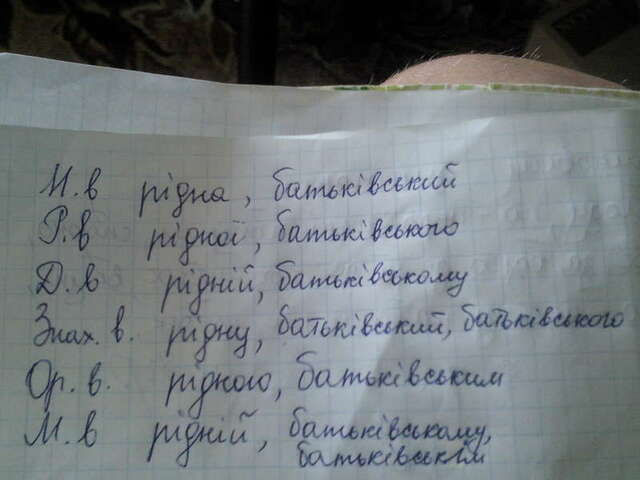 Н.в рідна, батьківський
Р.в рідної, батьківського
Д.в рідній, батьківському
Знах. в. рідну, батьківський, батьківського
Ор. в. рідною, батьківським
М. в рідній, батьківському,
батьківськім